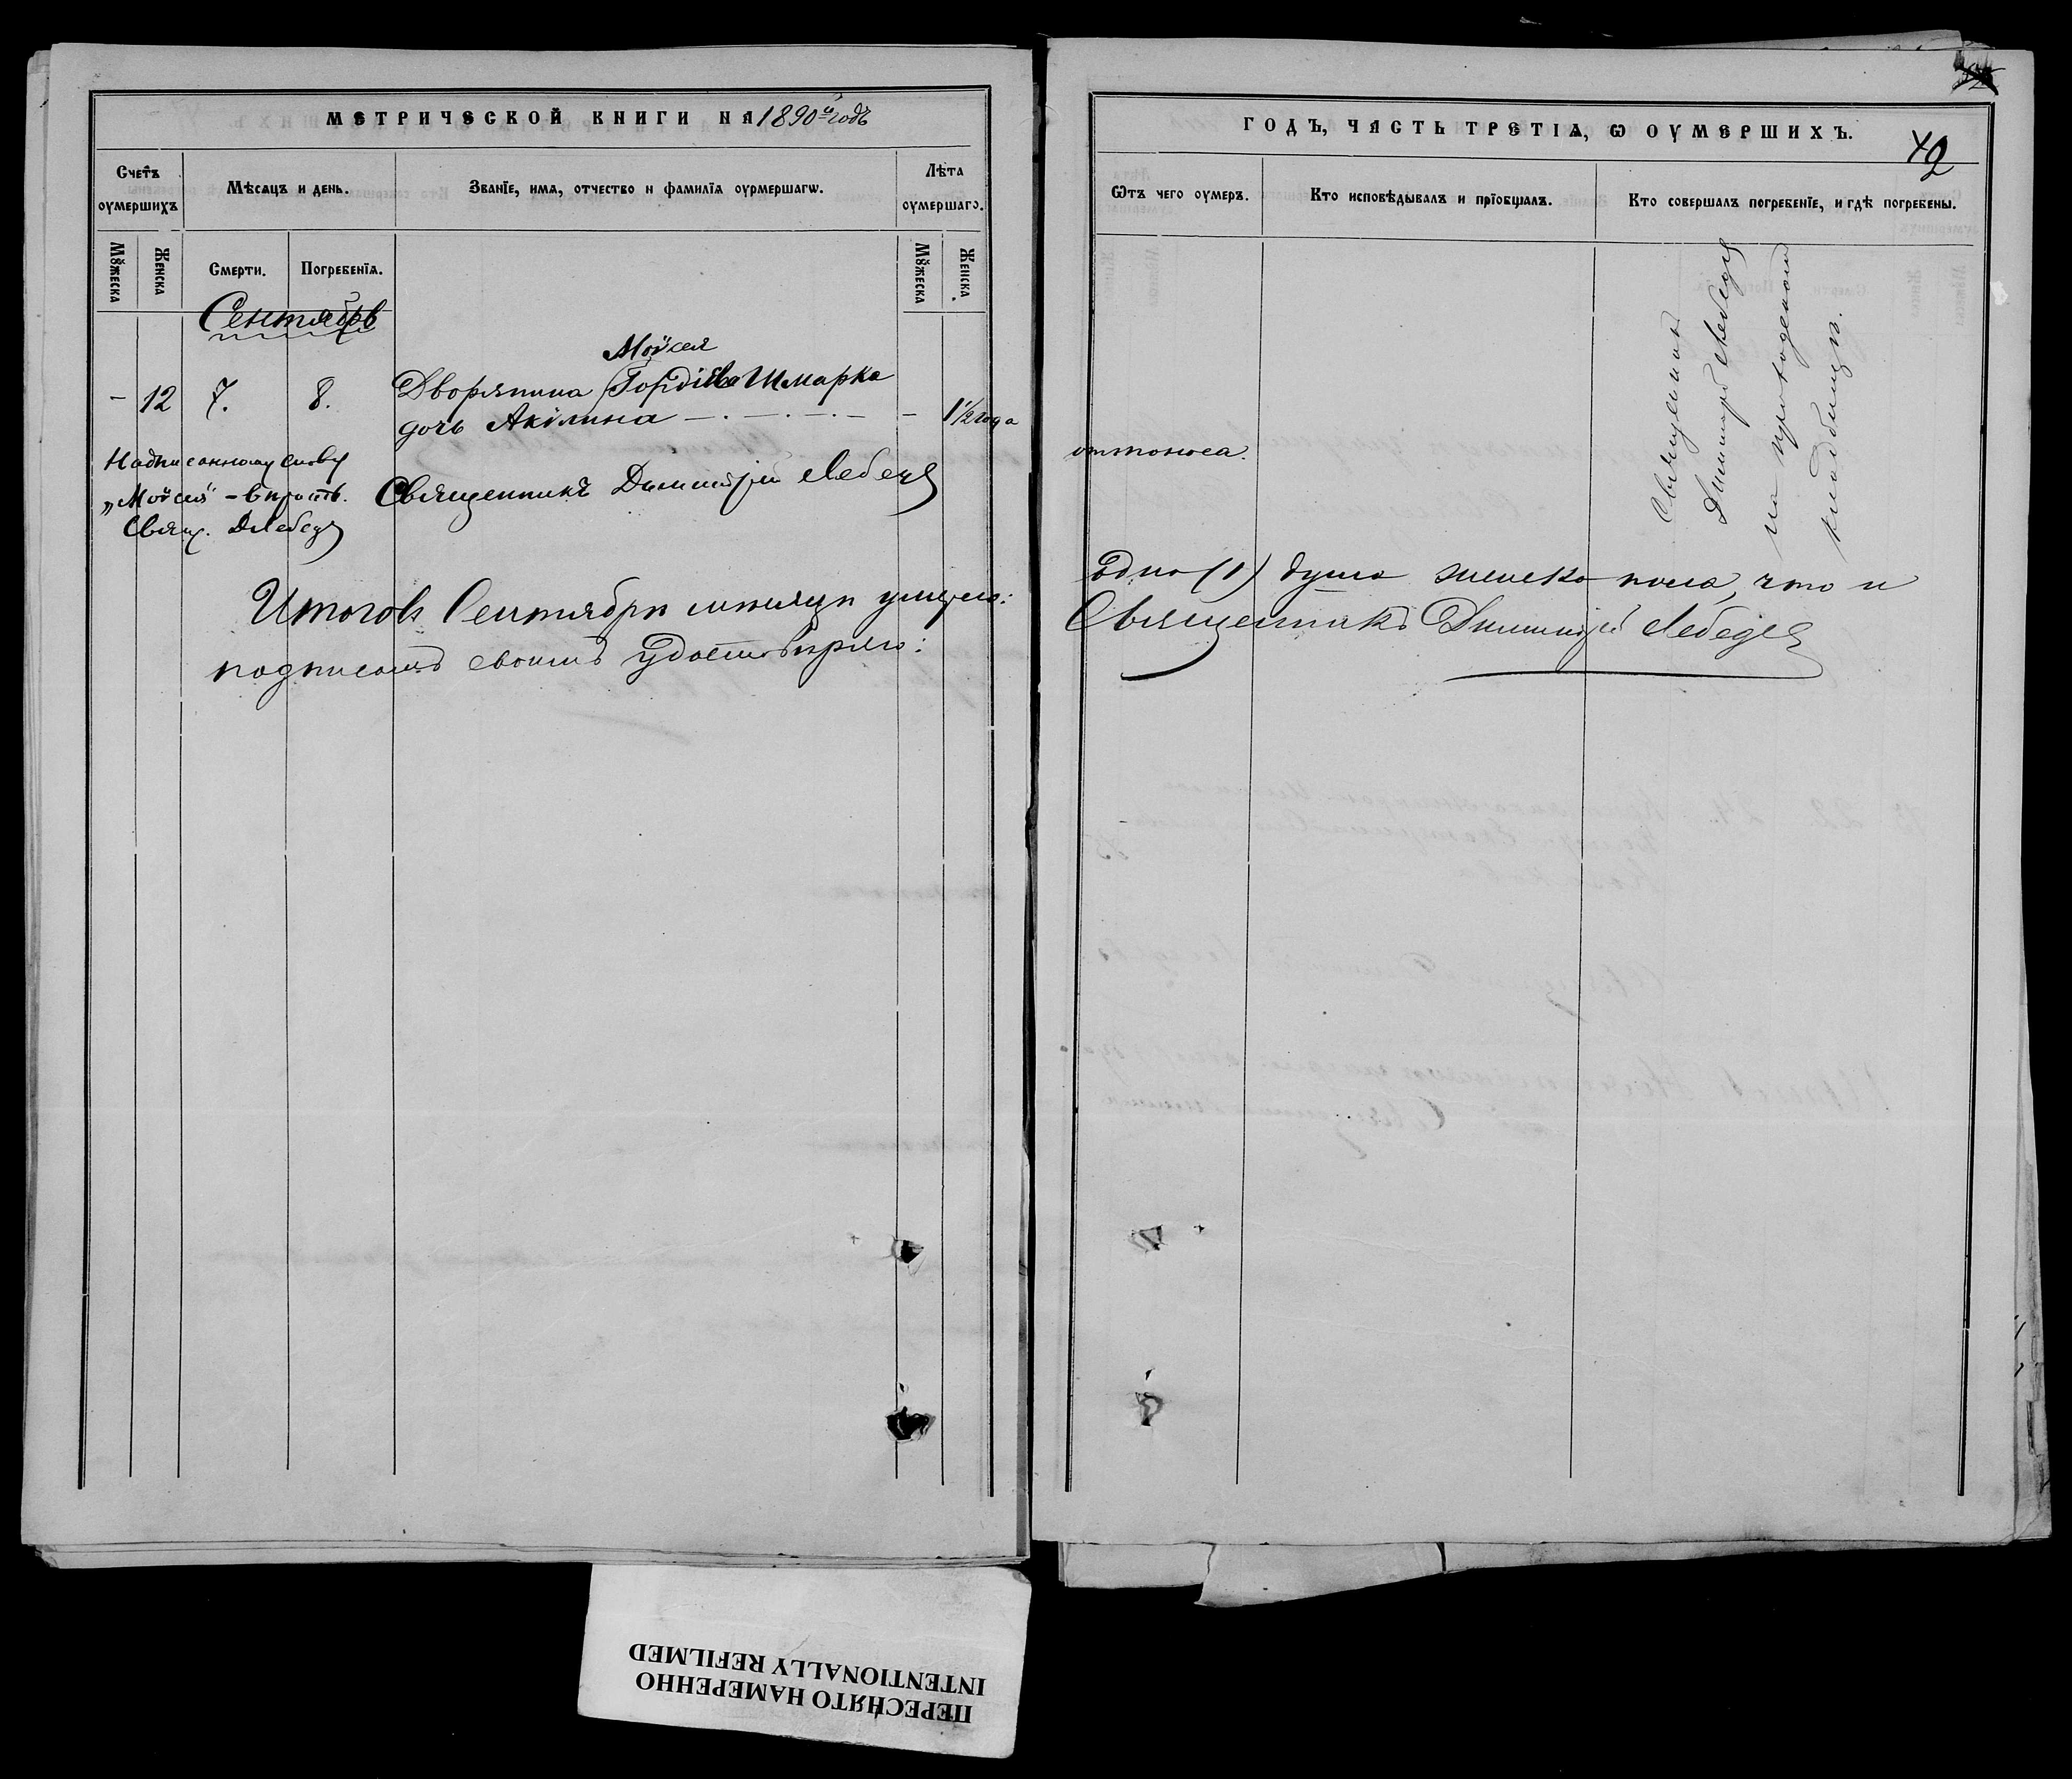 МЕТРИЧЕСКОЙ КНИГИ НА 1890й годъ
Счетъ оумершихъ
Мѣсяцъ и день.
Званїе, имя, отчество и фамилїя оурмершагѡ.
Лѣта оумершаго.
Мꙋжеска
Женска
Смерти.
Погребенїя.
Мꙋжеска
Женска.
Сентябрь
Мойсея
— 12 7. 8. Дворянина Гордіева Шмарка
дочь Акулина — . — . — . — — 1½ года
Надписанному слову
„Мойсея" – вѣрить.
Свящ. ДЛебедь
Священникъ Димитрій Лебедь
Итого въ Сентябрѣ мѣсяцѣ умерло:
подписомъ своимъ удостовѣряю:
ГОДЪ, ЧАСТЬ ТРЕТІЯ, Ѡ ОУМЕРШИХЪ.
42
Ѿтъ чего оумеръ.
Кто исповѣдывалъ и прїобщалъ.
Кто совершалъ погребенїе, и гдѣ погребены.
отъ поноса.
Священникъ
Димитрій Лебедь
на приходскомъ
кладбищѣ.
Одна (1) душа женска пола, что и
Священникъ Димитрій Лебедь
ПЕРЕСНЯТО НАМЕРЕННО
INTENTIONALLY REFILMED